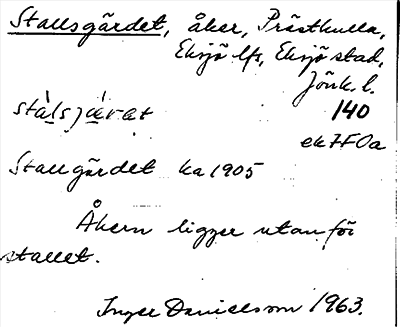 Stallsgärdet, åker, Prästkulla,
Eksjö lfs, Eksjö stad,
Jönk. l.
stàlsjǽrat 140
ek 7F0a
Stallgärdet ka 1905
Åkern ligger utanför
stallet.
Inger Danielsson 1963.